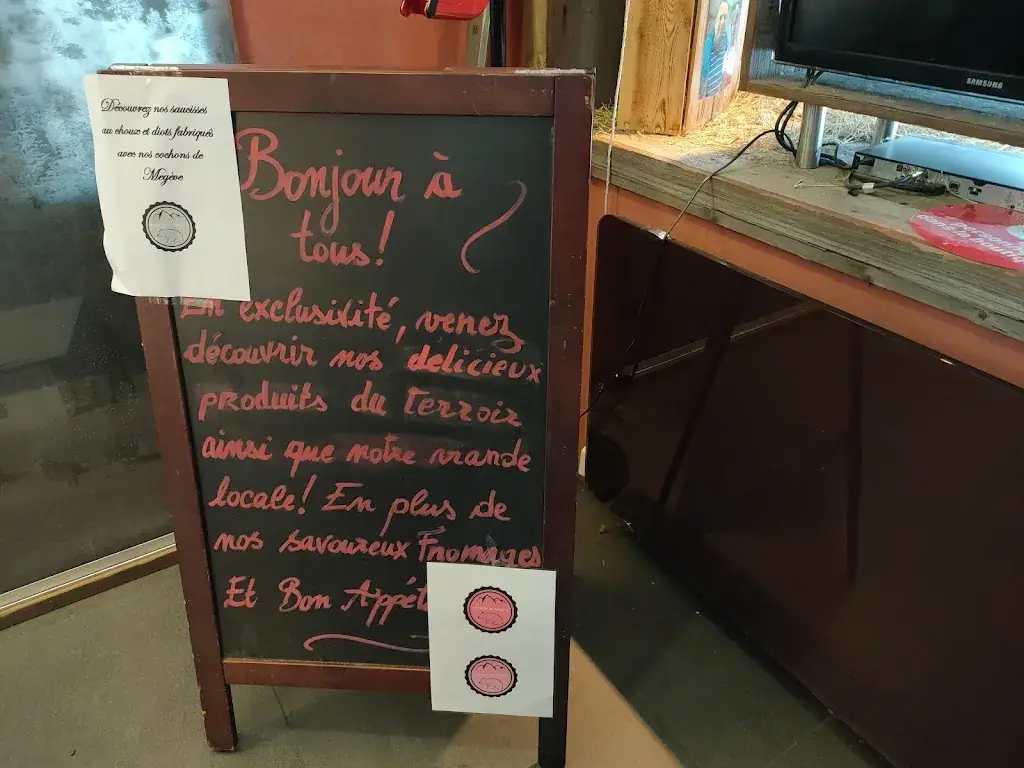 Découvrez nos saucisses
au choux et diots fabriqués
avec nos cochons de
Megève
Bonjour à
tous!
En exclusivité, venez
découvrir nos delicieux
produits du Terroir
ainsi que notre viande
locale! En plus de
nos savoureux Fromages
Et Bon Appét
SAMSUNG